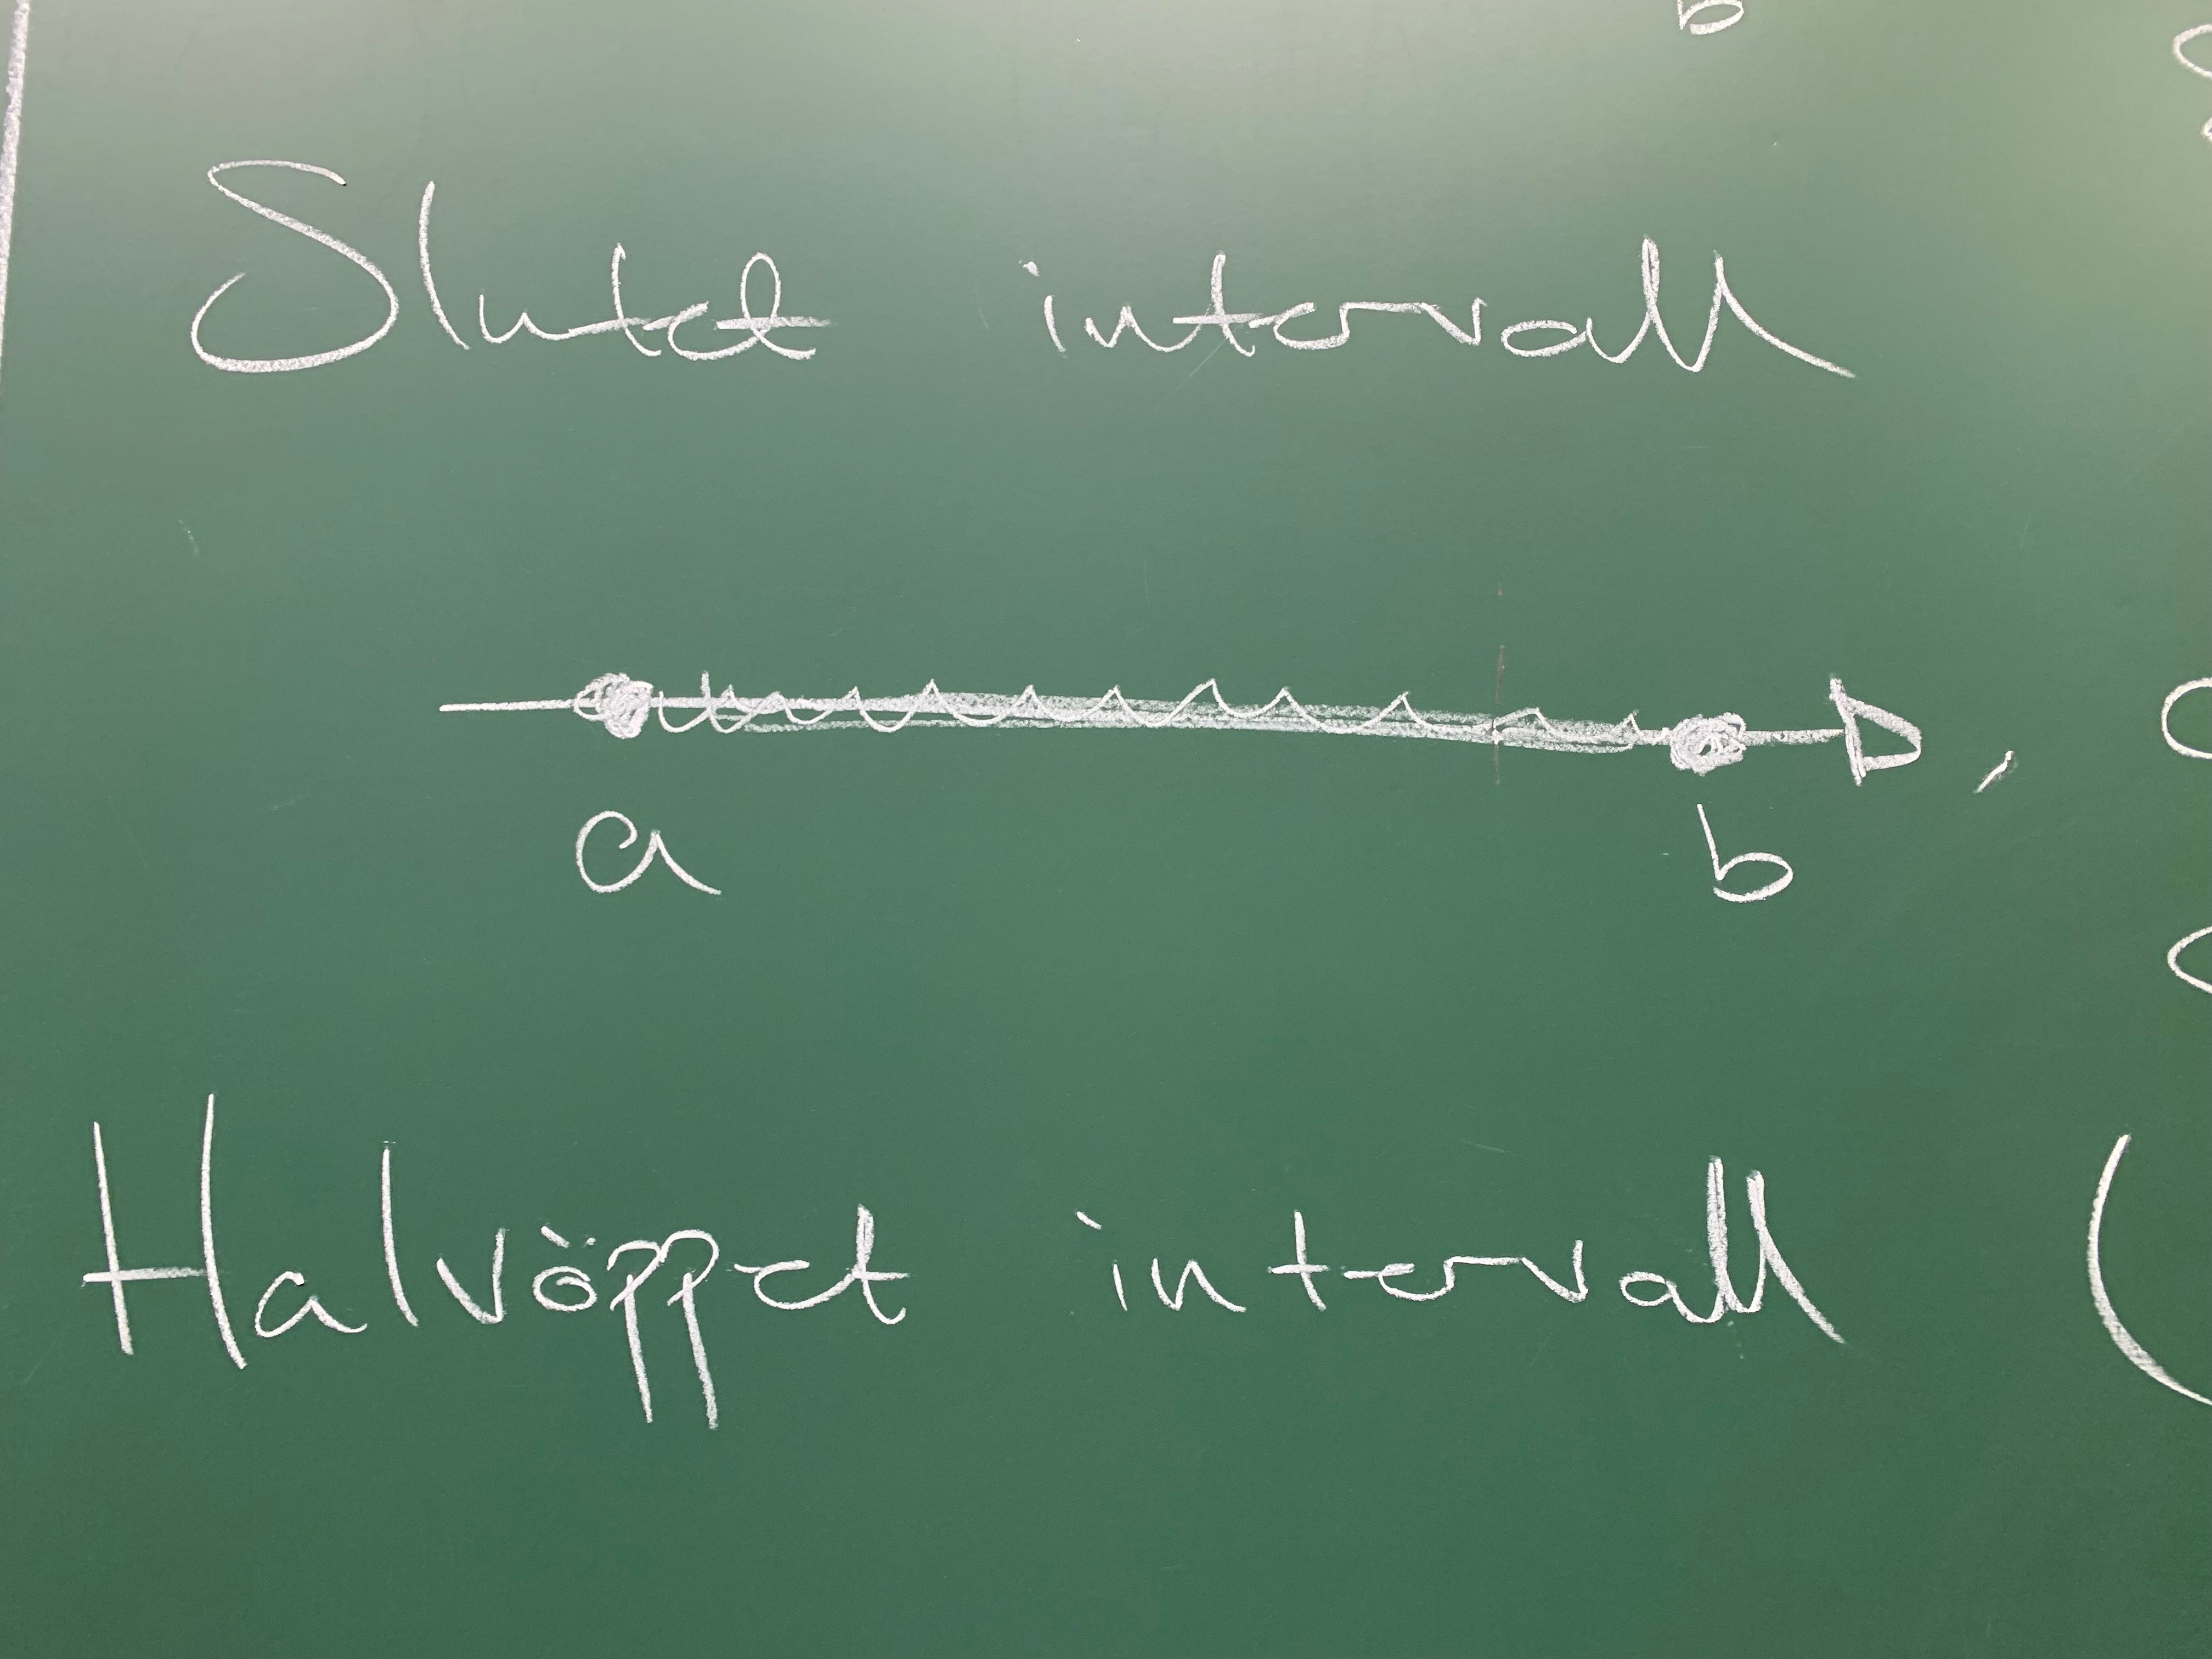 b
Slutet intervall
a b
Halvöppet intervall (